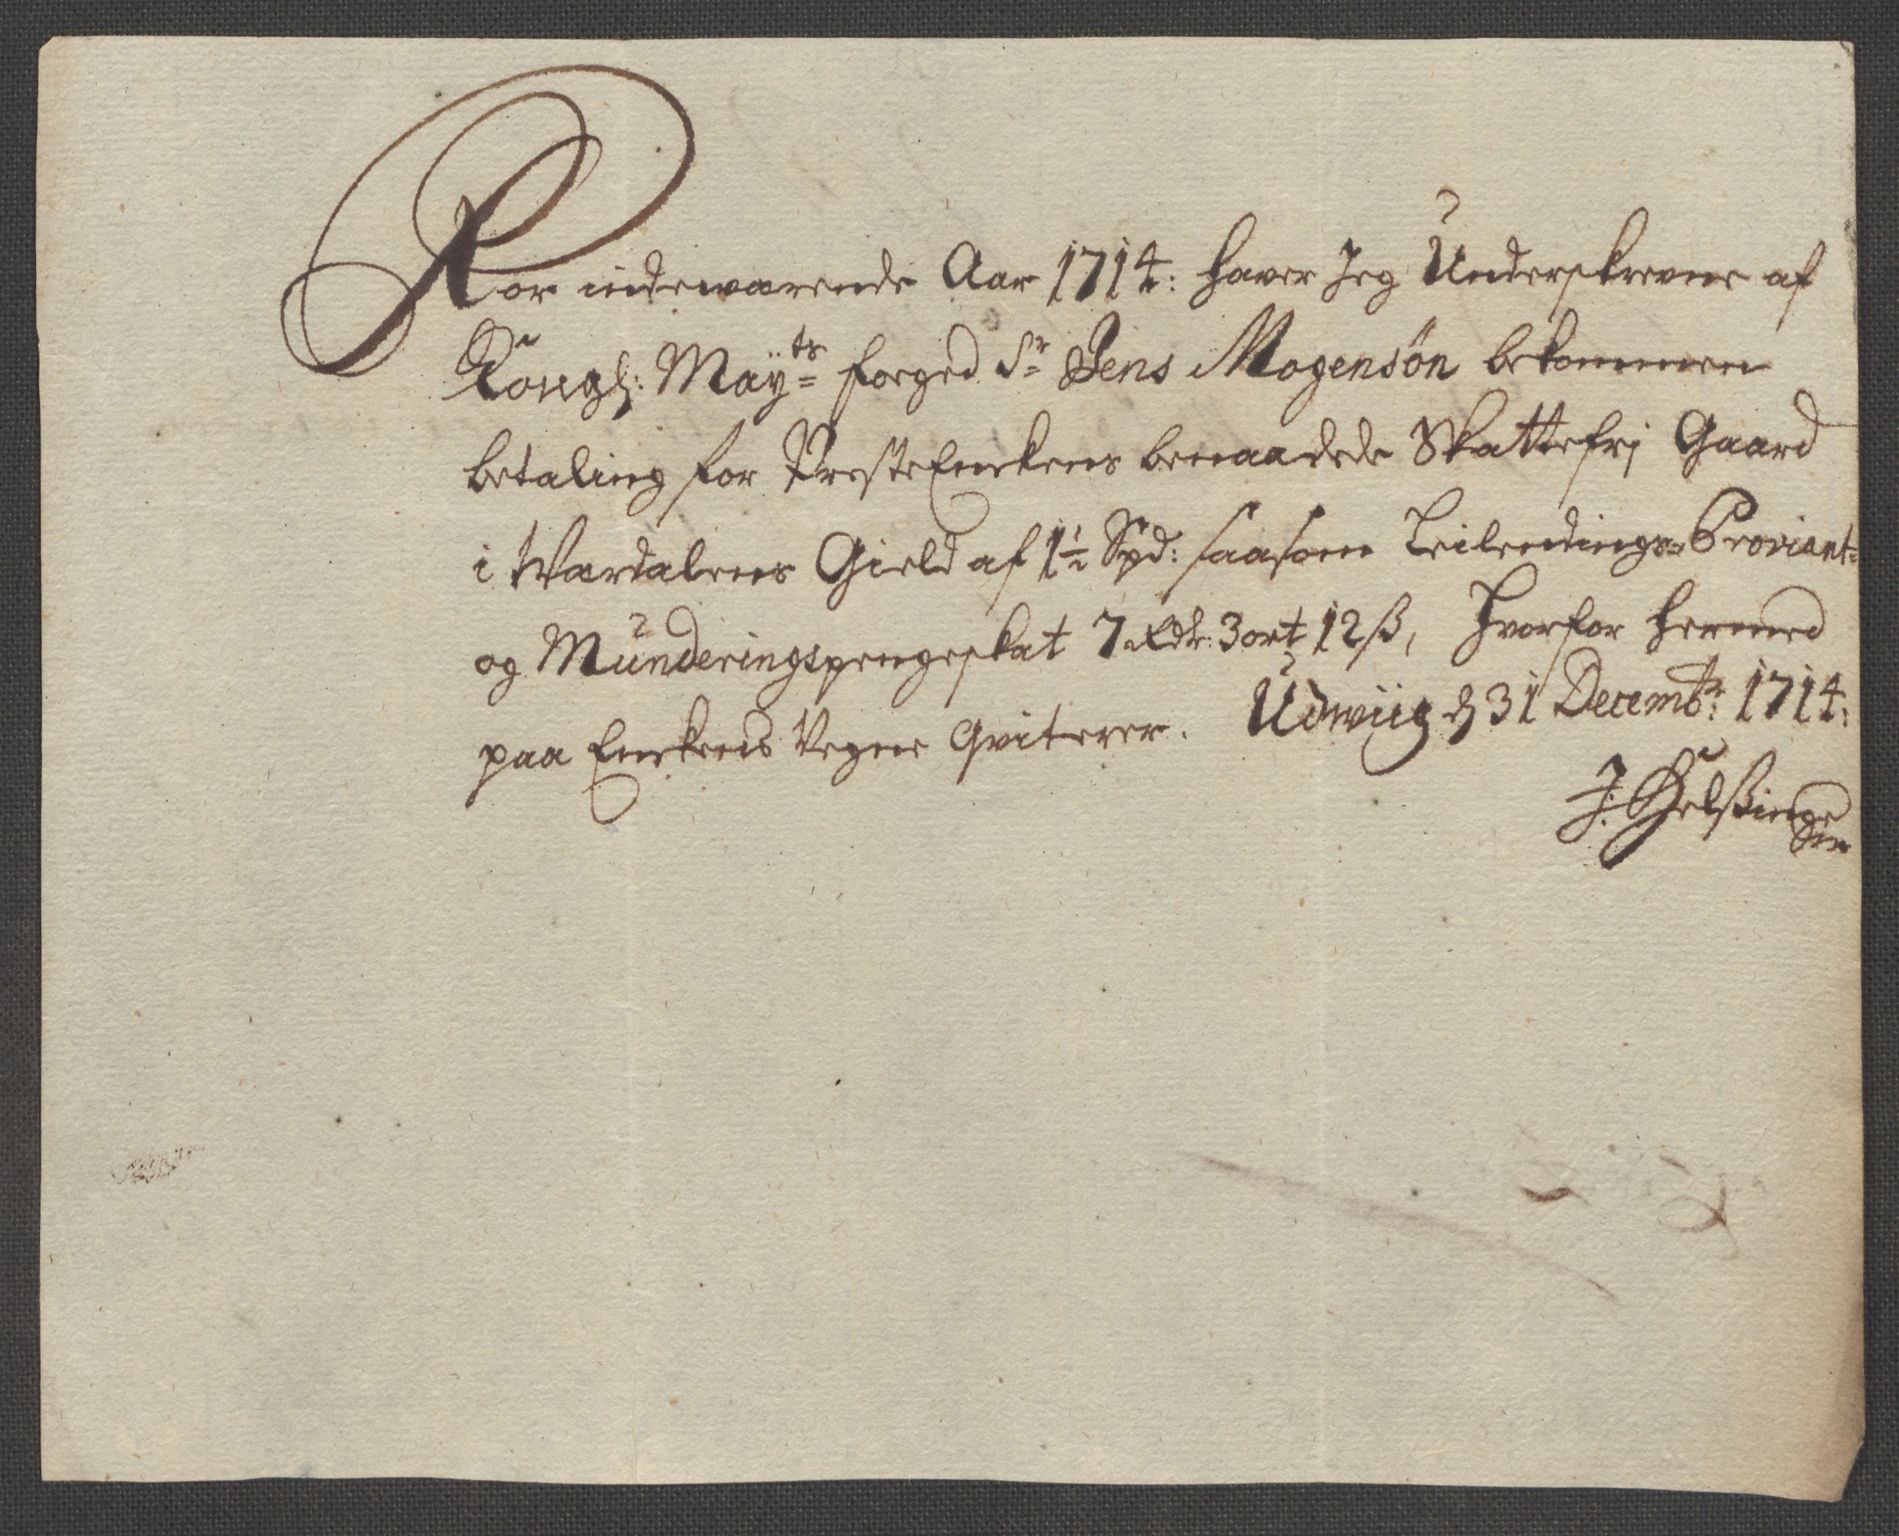 For indeværende Aar 1714: hafver Jeg Underskrevne af
Kongl: Mayts foged Sr Jens Mogensøn bekommen
betaling for PresteEnckens benaadede Skattefrj Gaard
i Værdalens Gield af 1½ Spd: saasom Leilendings- Proviant-
og Munderingspengeskat 7 Rdr: 3 ort 12 ß, hvorfor hermed
paa Enckens Vegne Qviterer. Udwiig d 31 Decembr: 1714:
J: Helssing